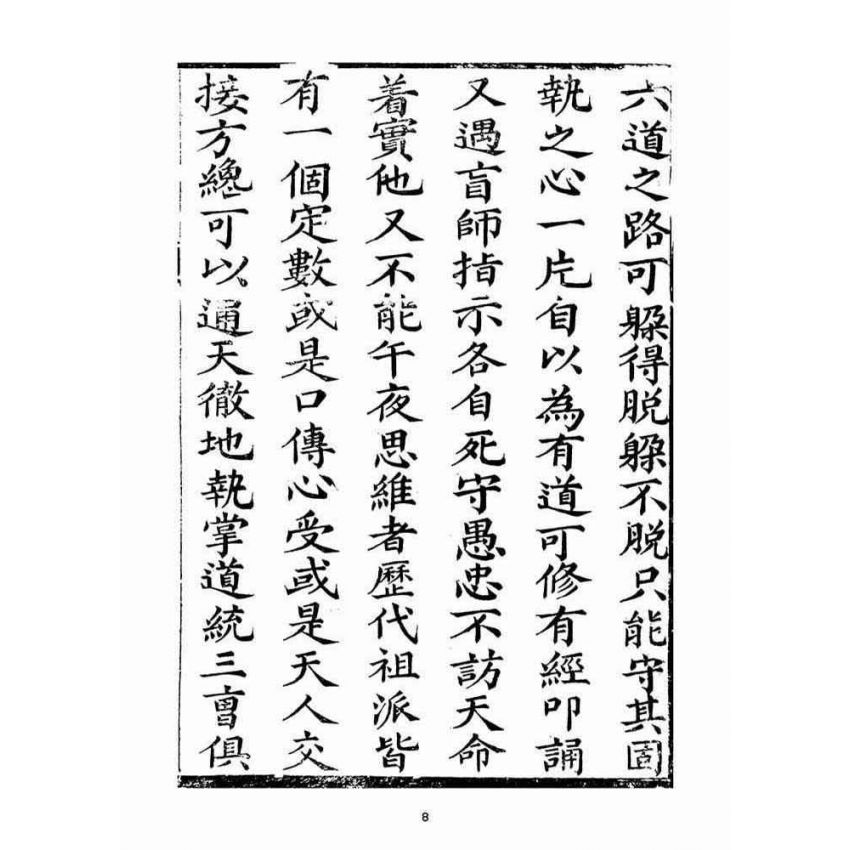 六道之路可躱得脱躱不脱只能守其固
執之心一片自以為有道可修有經叩誦
又遇盲師指示各自死守愚忠不訪天命
着實他又不能午夜思維者歷代祖派皆
有一個定數或是口傳心受或是天人交
接方纔可以通天徹地執掌道統三曹俱
8